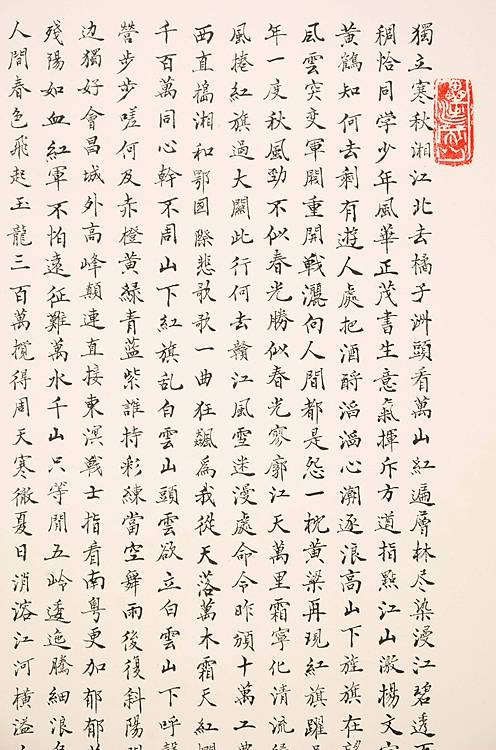 獨立寒秋湘江北去橘子洲頭看萬山紅遍層林尽染漫江碧透
稠恰同学少年風華正茂書生意氣揮斥方遒指點江山激楊文
黃鶴知何去剩有遊人處把酒酹滔滔心潮逐浪高山下旌旗在
風雲突变軍閥重開戰灑向人間都是怨一枕黃粱再現紅旗躍
年一度秋風勁不似春光勝似春光寥廓江天萬里霜寧化清流
風捲紅旗過大關此行何去贛江風雪迷漫處命令昨頒十萬工
西直搗湘和鄂国際悲歌歌一曲狂飆為我從天落萬木霜天紅
千百萬同心幹不周山下紅旗乱白雲山頭雲欲立白雲山下呼
營步步嗟何及赤橙黃綠青藍紫誰持彩練當空舞雨後復斜陽
边獨好會昌城外高峰顛連直接東溟戰士指看南粵更加郁郁
殘陽如血紅軍不怕遠征難萬水千山只等閒五岭逶迤騰細浪
人間春色飛起玉龍三百萬攪得周天寒徹夏日消溶江河橫溢